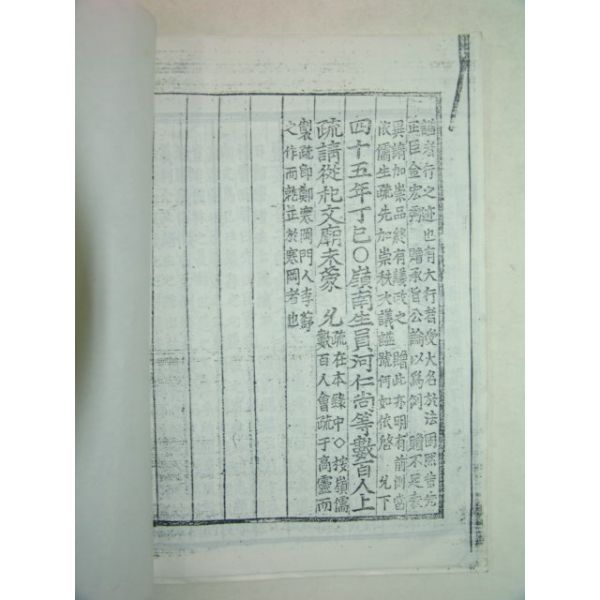 謚者行之迹也有大行者受大名於法因照昔先
正臣金宏弼 贈承旨公論以爲例 贈不足表
異請加崇品終有議政之 贈此亦明有前例當
依儒生疏先加崇秩次議謚號何如依啓 允下
四十五年丁巳○嶺南生員河仁尙等數百人上
疏請從祀文廟未蒙 允
疏在本錄中○按嶺儒
數百人會疏于高靈而
製疏卽鄭寒岡門人李
之作而就正於寒岡者也